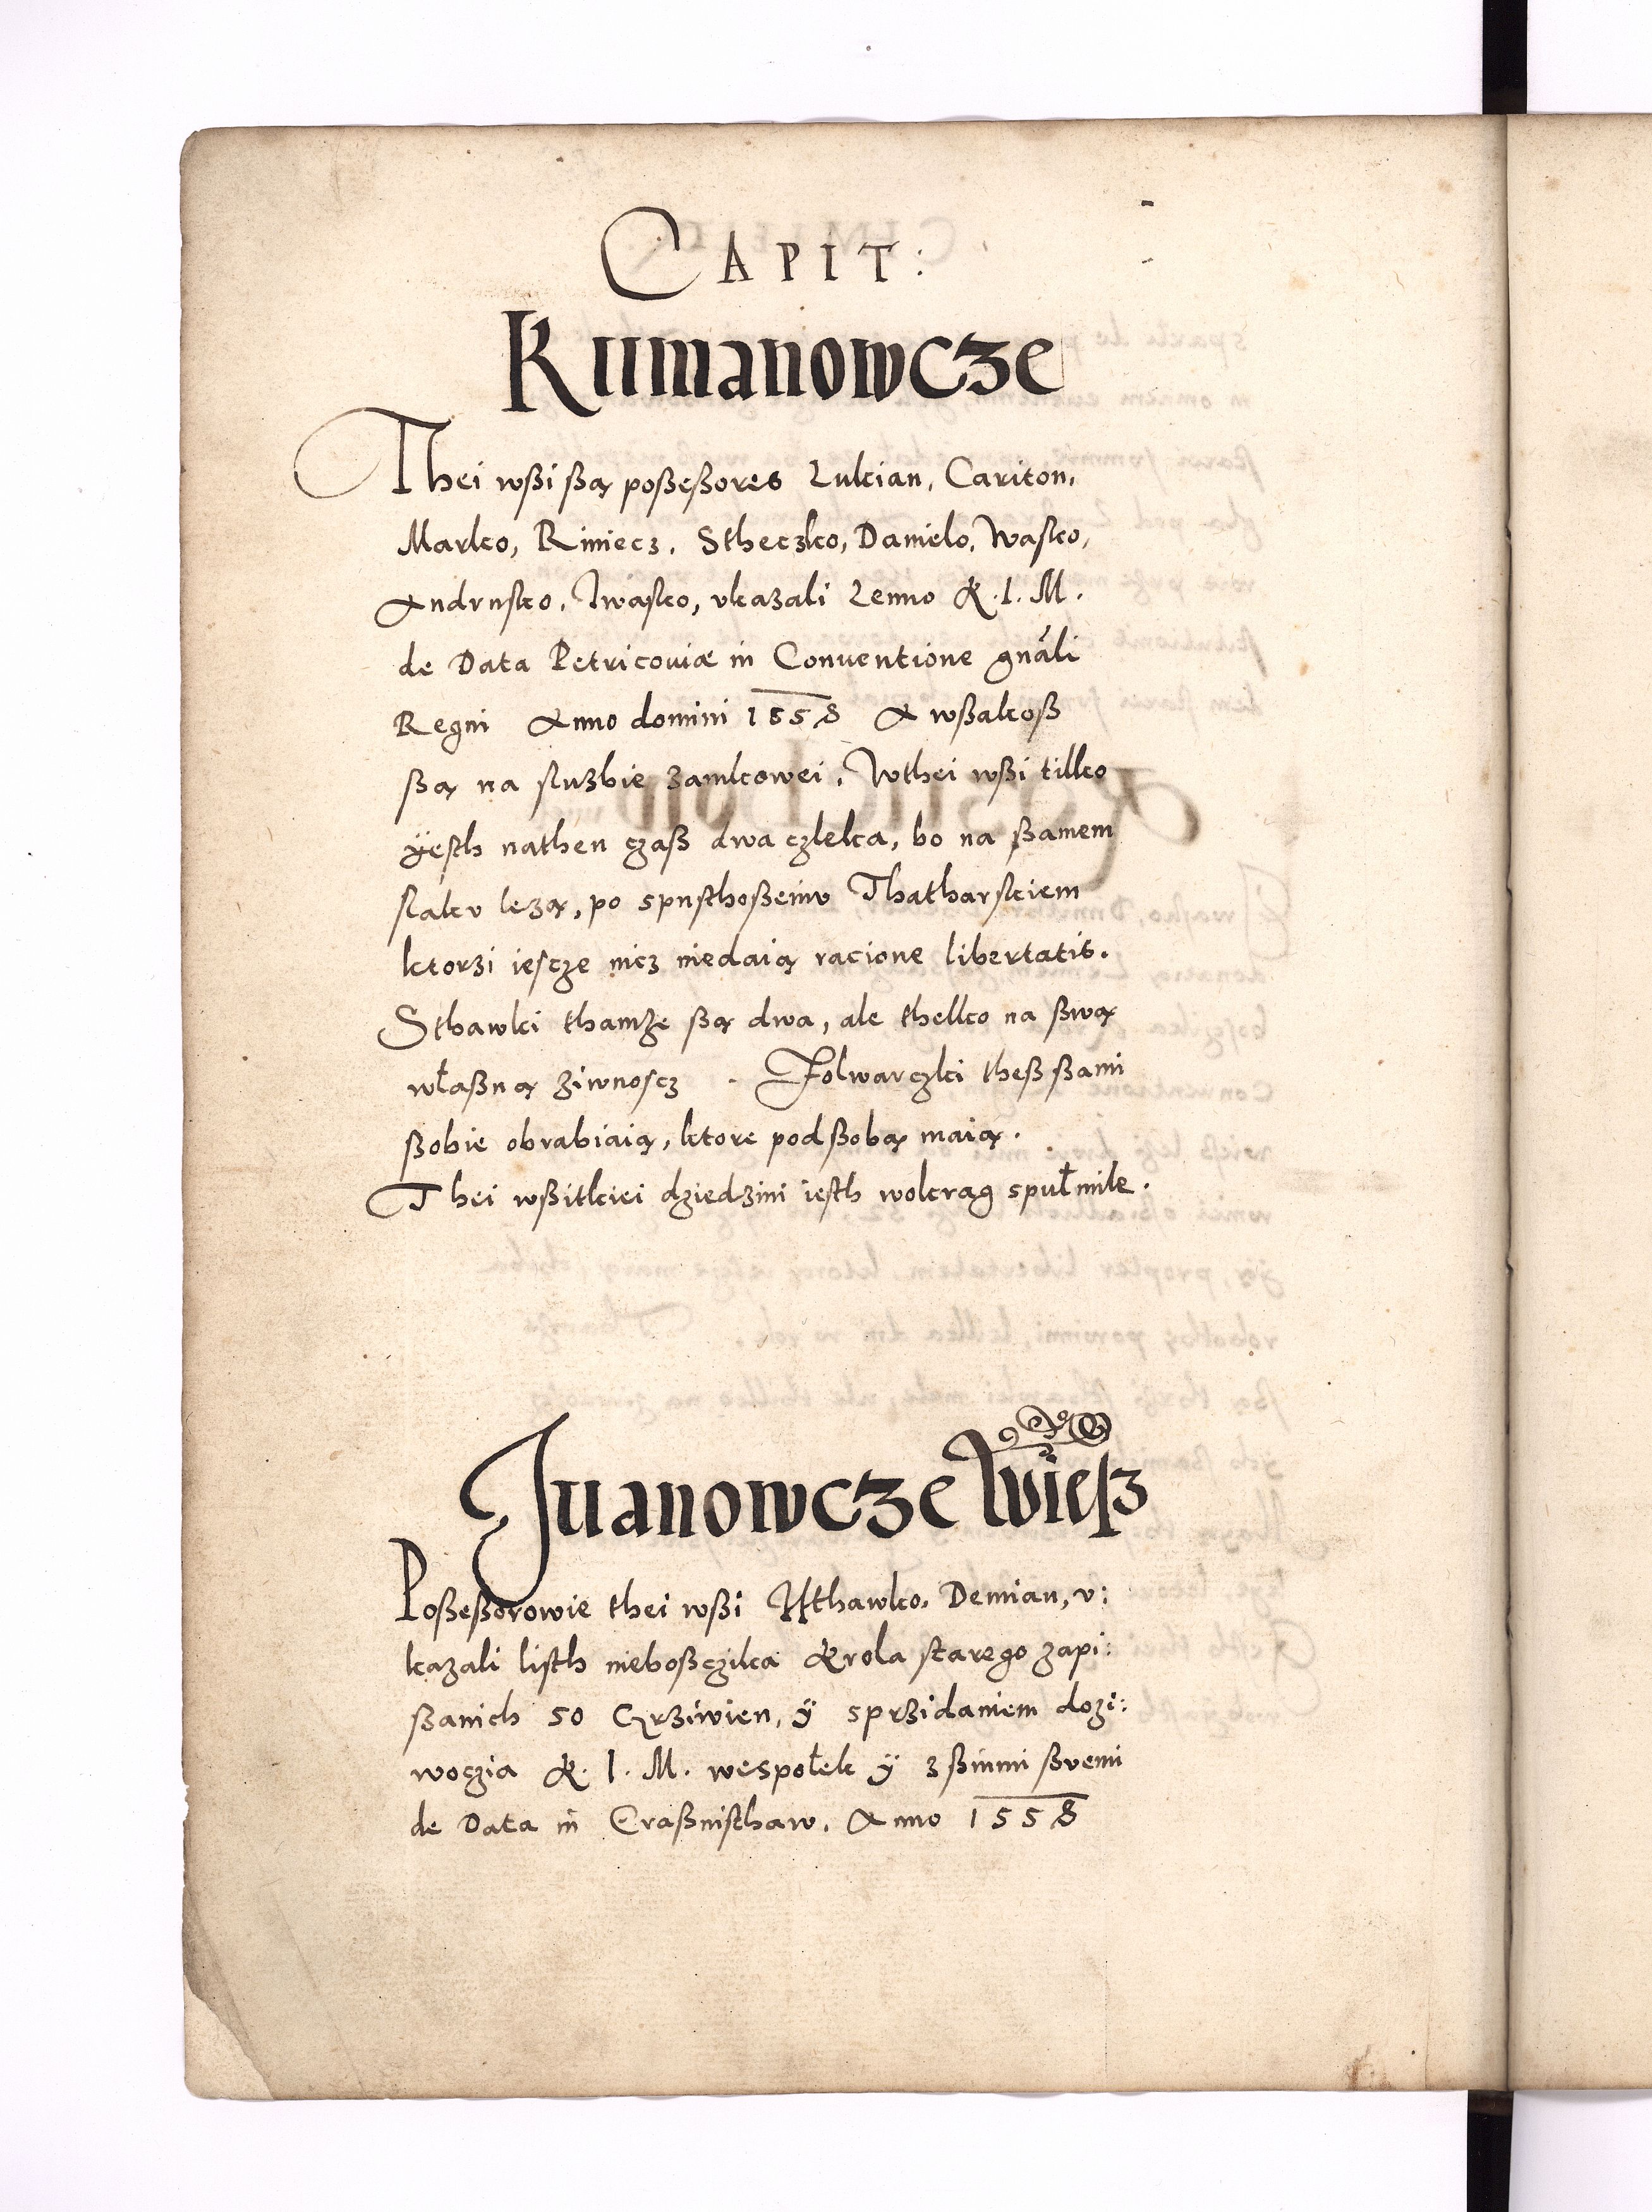 CAPIT:
Kumanowcze
Thei wßi ßą poßeßores Lukian, Cariton,
Marko, Rimiecz, Stheczko, Danielo, Wasko,
Andrusko, Iwasko, vkazali Lenno K. I. M.
de Data Petricouiæ in Conuentione gnāli
Regni Anno domini 1558 A wßakoß
ßą na sluzbie zamkowei, Wthei wßi tilko
ÿesth nathen czaß dwa czleka, bo na ßamem
slaku lezą, po spusthoßeniu Thatharskiem
ktorzi iescze nicz niedaią racione libertatis.
Sthawki thamże ßą dwa, ale thelko na ßwą
właßną ziwnoscz . Folwarczki theß ßami
ßobie obrabiaią, ktore pod ßobą maią.
Thei wßitkiei dziedzini iesth wokrąg spuł mile.
Iuanowcze Wiesz
Poßeßorowie thei wßi Hthawko, Demian, v:
kazali listh nieboßczika Krola starego zapi:
ßanich 50 Grziwien, ÿ sprzidaniem dozi:
woczia K. I. M. wespołek ÿ z ßinmi ßvemi
de Data in Craßnisthaw, Anno 1558